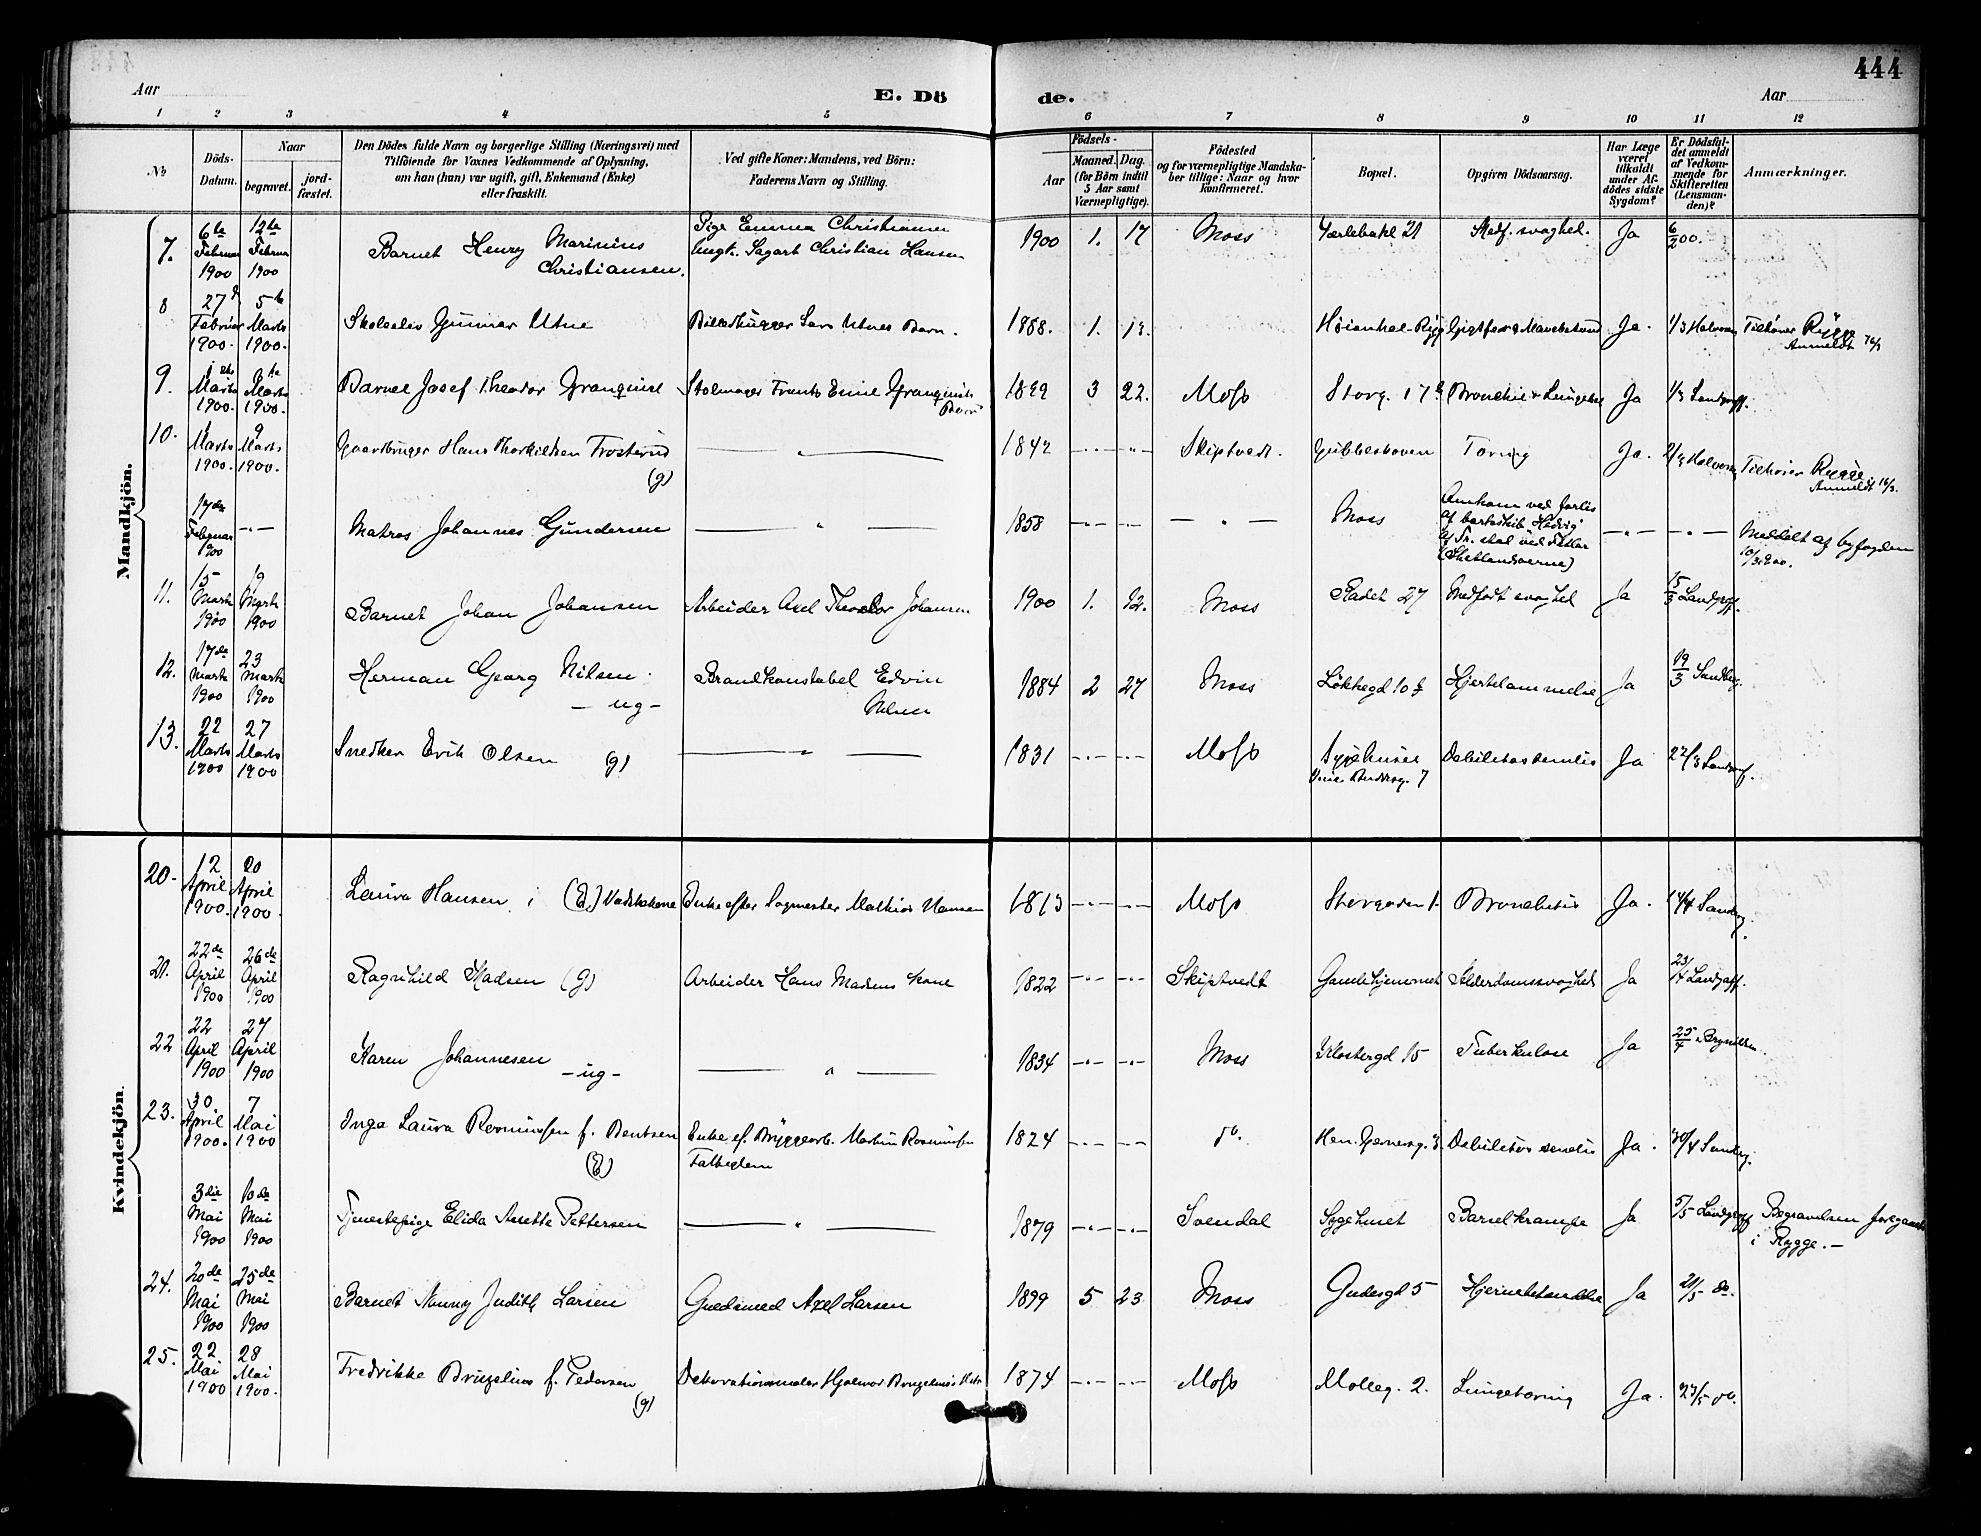 444
Aar
E. Dö
de.
Aar
1 2 3 4 5 6 7 8 9 10 11 12
No
Döds-
Datum.
Naar
begravet.
jord-
fæstet.
Den Dödes fulde Navn og borgerlige Stilling (Næringsvei) med
Tilföiende for Voxnes Vedkommende af Oplysning,
om han (hun) var ugift, gift, Enkemand (Enke)
eller fraskilt.
Ved gifte Koner: Mandens, ved Börn:
Faderens Navn og Stilling.
Födsels-
Aar
Maaned. Dag.
(for Börn indtil
5 Aar samt
Værnepligtige).
Födested
og for værnepligtige Mandska-
ber tillige: Naar og hvor
konfirmeret.
Bopæl.
Opgiven Dödsaarsag.
Har Læge
været
tilkaldt
under Af-
dödes sidste
Sygdom?
Er Dödsfal-
det anmeldt
af Vedkom-
mende for
Skifteretten
(Lensman-
den)?
Anmærkninger.
Mandkjön.
7.
6te Februar 1900
12te Februar 1900
Barnet Henry Marinius
Christiansen.
Pige Emma Christiansen
Ungk. Sagarb Christian Hansen
1900 1. 17
Moss
Værlebakk 21
Medf. svaghed.
Ja
6/2 00.
8
27 Februar 1900.
5te Marts 1900.
Skoleelev Gunnar Utne
Billedhugger Lars Utnes Barn.
1888. 1. 13.
Ja.
1/3 Halvorsen
Tilhører Rygge
Anmeldt 16/3
9.
1 Marts 1900.
Marts 1900.
Barnet Josef Theodor Granquist
Stolmager Frants Emil Granquists
Barn
1899 3 22.
Moss
Storg. 17b
Ja
10.
1 Marts 1900.
9 Marts 1900.
Gaardbruger Hans Thorkildsen Frosterud
(g)
— " —
1842
Skiptvedt.
Gubbeskoven
Tæring
Ja.
2/3 Halvorsen
Tilhører Rygge.
Anmeldt 16/3.
17de Februar 1900
Matros Johannes Gundersen
— " —
1858
— " —
Moss
Omkom ved forlis
af barkskib "Hedvig"
af Fr. stad ved Fetlar
(Shetlandsøerne)
Meddelt af byfogden
10/3 1900.
11.
15 Marts 1900
19 Marts 1900
Barnet Johan Johansen
Arbeider Axel Theodor Johansen
1900 1. 12.
Moss
Radet 27
Medfødt svaghed
Ja
15/3 Landgraff.
12.
17de Marts 1900
23 Marts 1900
Herman Georg Nilsen.
— ug —
Brandkonstabel Edvin
Nilsen
1884 2 27
Moss
Løkkegd 10 b
Hjertelammelse
Ja
19/3 Sandberg.
13.
22 Marts 1900
27 Marts 1900
Snedker Erik Olsen (g)
— " —
1831
Moss
Sygehuset
Debilitas senilis
Ja
22/3
Kvindekjön.
20.
12 April 1900.
20 April 1900.
Laura Hansen, (E.) Vadskekone
Enke efter Sagmester Mathias Hansen
1813
Moss
Storgaden 1.
Bronchitis
Ja.
14/4 Sandberg.
21.
22de April 1900
26de April 1900
Ragnhild Madsen (g)
Arbeider Hans Madsens kone
1822
Skiptvedt
Gamlehjemmet
Alderdomssvaghed
Ja
23/4 Landgraff.
22
22 April 1900
27 April 1900
Karen Johannesen
— ug —
— " —
1834
Moss
Klostergd 15
Tuberkulose
Ja
25/4 Brynildsen.
23.
30 April 1900.
7 Mai 1900
Inga Laura Rasmussen f. Bentsen
(E)
Enke ef. Bryggearb. Martin Rasmussen
Fattiglem
1824
do.
Hen. Gernersg. 3.
Debilitas senilis
Ja.
30/4 Sandberg.
3die Mai 1900
10de Mai 1900
Tjenestepige Elida Anette Pettersen
— " —
1879
Svendal
Sygehuset
Barselkrampe
Ja
5/5 Landgraff
Begravelsen foregaaet
i Rygge. —
24.
20de Mai 1900
25de Mai 1900
Barnet Nanny Judith Larsen
Guldsmed Axel Larsen
1899 5 23
Moss
Gudesgd 5
Hjernebetændelse
Ja
21/5 do.
25.
22 Mai 1900
28 Mai 1900.
Fredrikke Bruzelius f. Pedersen
(g)
Dekorationsmaler Hjalmar Bruzelius's Kone
1874
Moss
Molleg. 2.
Lungetæring
Ja.
23/5 do.